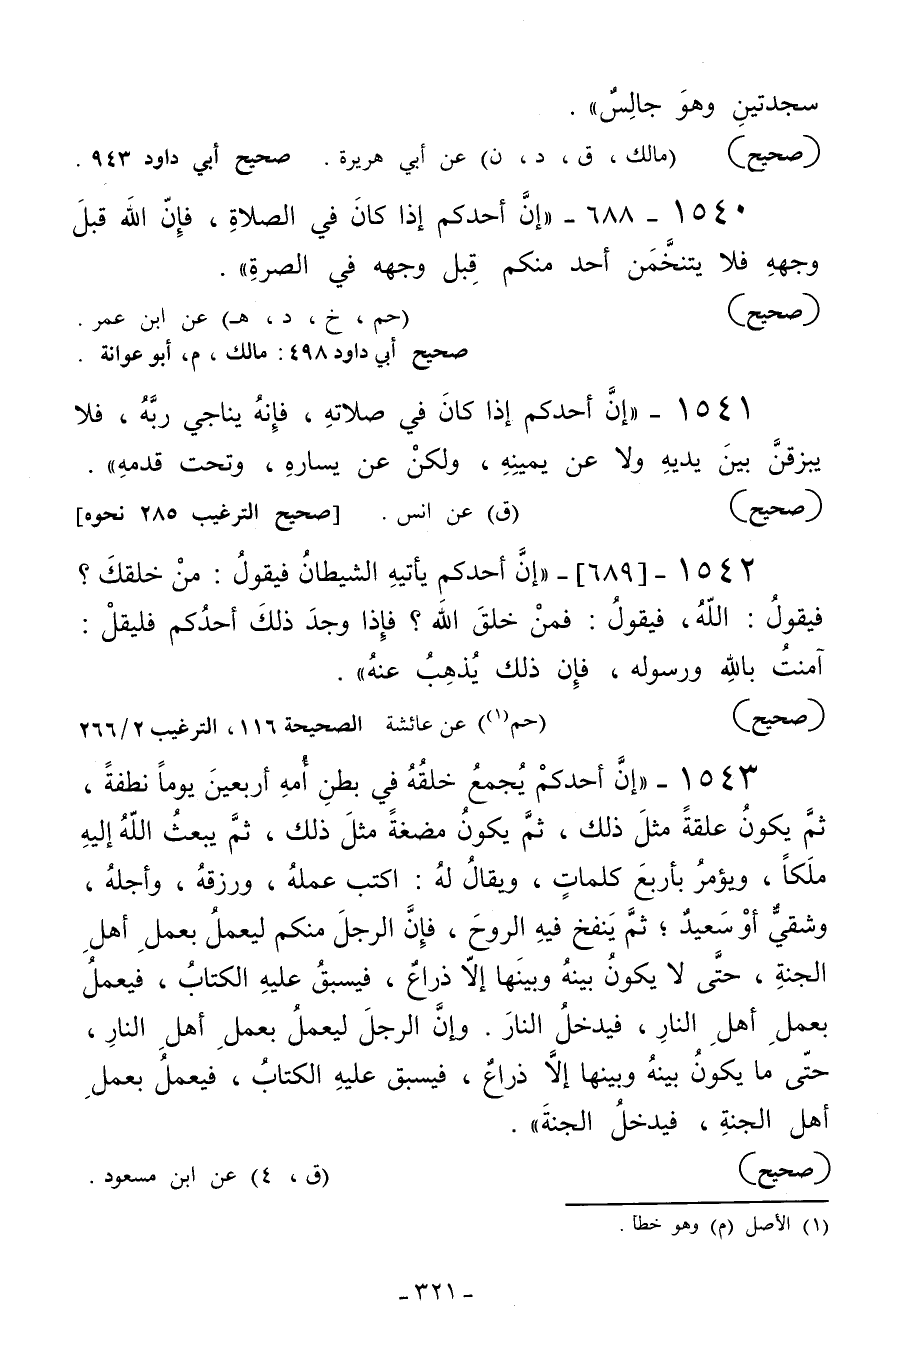 سجدتينِ وهوَ جالِسٌ» .
(صحيح) (مالك ، ق ، د ، ن) عن أبي هريرة . صحيح أبي داود ٩٤٣ .
١٥٤٠ - ٦٨٨ - «إنَّ أحدكم إذا كانَ في الصلاةِ ، فإِنّ اللهَ قبلَ
وجههِ فلا يتنخَّمَن أحد منكم قِبل وجهه في الصرةِ» .
(صحيح) (حم ، خ ، د ، هـ) عن ابن عمر .
صحيح أبي داود ٤٩٨ : مالك ، م، أبو عوانة .
١٥٤١ - «إنَّ أحدكم إذا كانَ في صلاتهِ ، فإِنهُ يناجي ربَّهُ ، فلا
يبزقنَّ بينَ يديهِ ولا عن يمينِهِ ، ولكنْ عن يسارهِ ، وتحت قدمهِ» .
(صحيح) (ق) عن انس . [صحيح الترغيب ٢٨٥ نحوه]
١٥٤٢ - [٦٨٩] - «إنَّ أحدكم يأتيهِ الشيطانُ فيقولُ : منْ خلقكَ ؟
فيقولُ : اللّهُ ، فيقولُ : فمنْ خلقَ اللهَ ؟ فإِذا وجدَ ذلكَ أحدُكم فليقلْ :
آمنتُ باللهِ ورسوله ، فإِن ذلك يُذهِبُ عنهُ» .
(صحيح) (حم(١)) عن عائشة الصحيحة ١١٦ ، الترغيب ٢/ ٢٦٦
١٥٤٣ - «إنَّ أحدكمْ يُجمعُ خلقُهُ في بطنِ أُمهِ أربعينَ يوماً نطفةً ،
ثمَّ يكونُ علقةً مثلَ ذلك ، ثمَّ يكونُ مضغةً مثلَ ذلك ، ثمَّ يبعثُ اللّهُ إليهِ
ملَكاً ، ويؤمرُ بأربعَ كلماتٍ ، ويقالُ لهُ : اكتب عملهُ ، ورزقهُ ، وأجلهُ ،
وشقيٌّ أوْ سَعيدٌ ؛ ثمَّ يَنفخ فيهِ الروحَ ، فإِنَّ الرجلَ منكم ليعملُ بعملِ أهلِ
الجنةِ ، حتَّى لا يكونُ بينهُ وبينَها إلاّ ذراعٌ ، فيسبقُ عليهِ الكتابُ ، فيعملُ
بعملِ أهلِ النارِ ، فيدخلُ النارَ . وإنَّ الرجلَ ليعملُ بعملِ أهلِ النارِ ،
حتّى ما يكونُ بينهُ وبينها إلاَّ ذراعٌ ، فيسبق عليهِ الكتابُ ، فيعملُ بعملِ
أهل الجنةِ ، فيدخلُ الجنةَ» .
(صحيح) (ق ، ٤) عن ابن مسعود .
(١) الأصل (م) وهو خطأ .
- ٣٢١ -